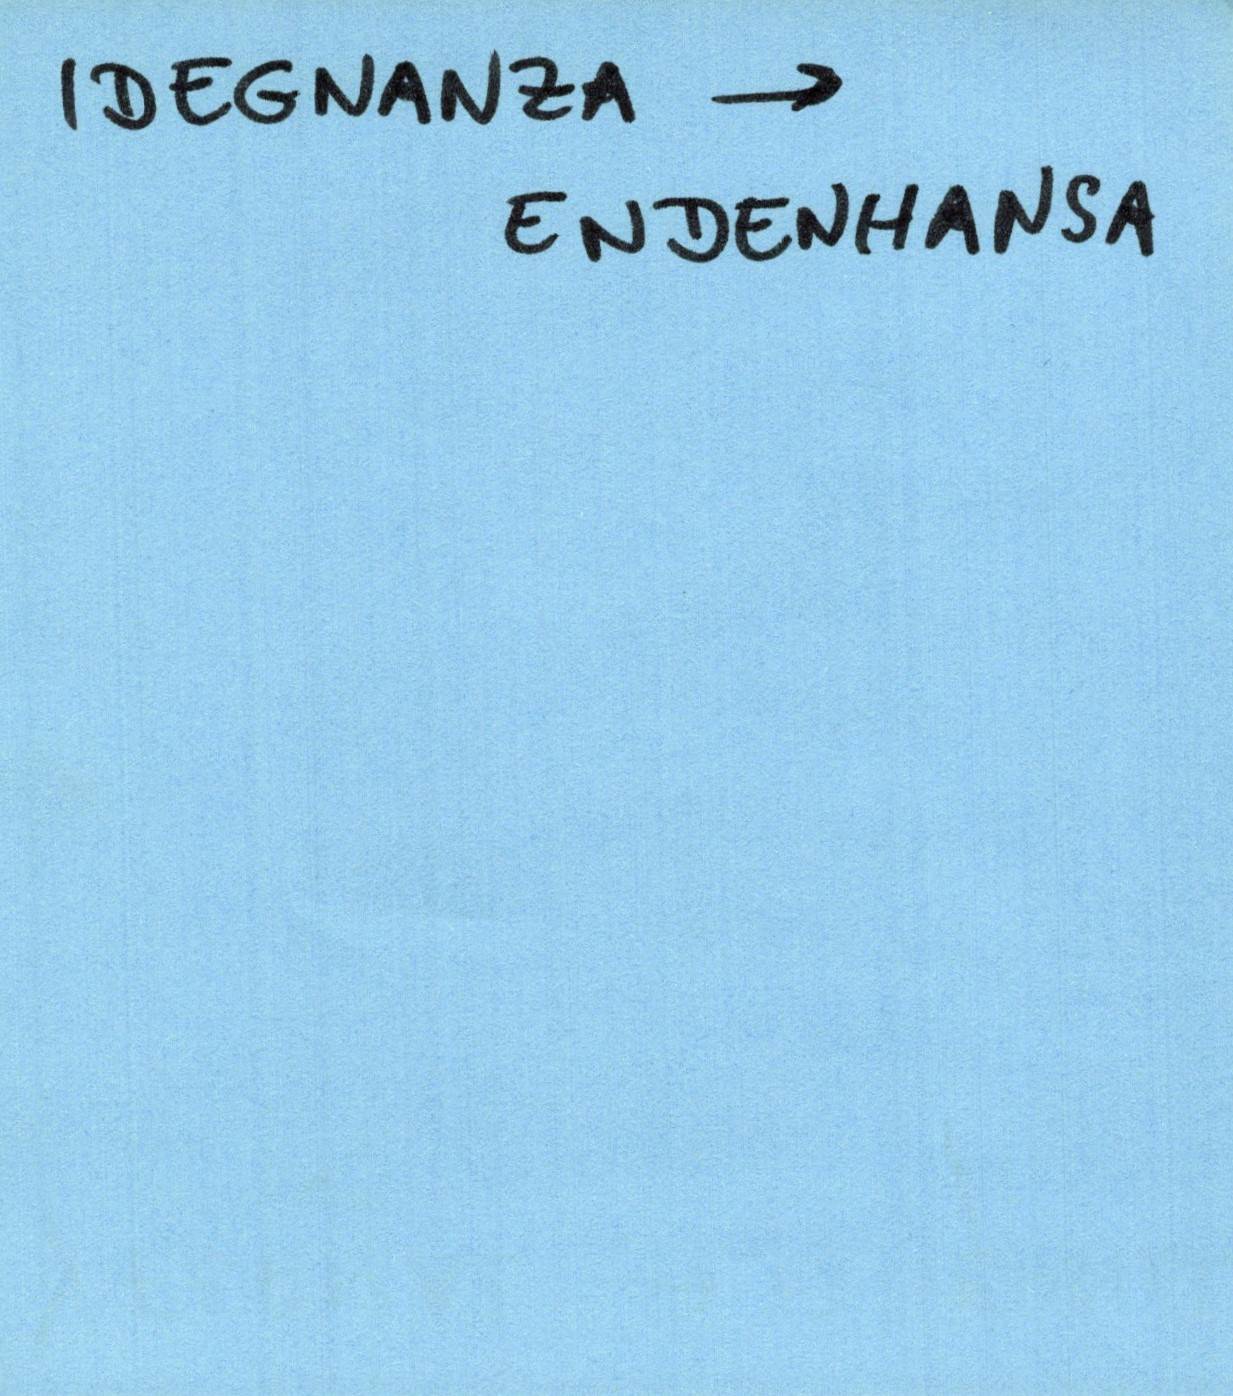 IDEGNANZA →
ENDENHANSA